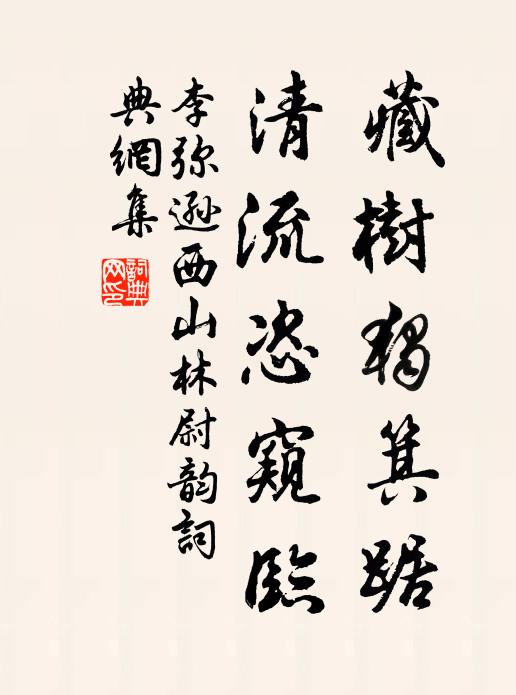 藏樹獨箕踞
清流恣窺臨
李弥遜西山林尉韵詞
典網集
詞典网印